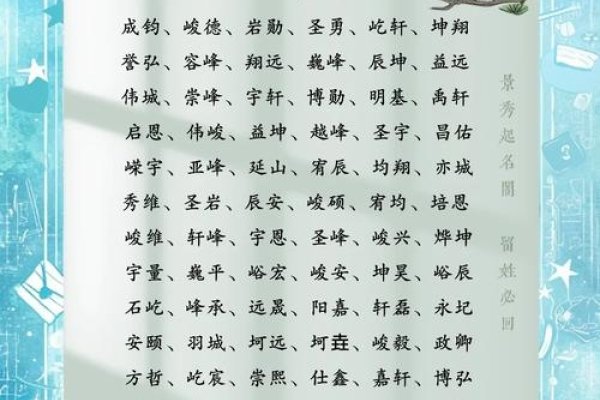 成钧、峻德、岩勋、圣勇、屹轩、坤翔
誉弘、容峰、翔远、巍峰、辰坤、益远
伟城、崇峰、宇轩、博勋、明基、禹轩
启恩、伟峻、益坤、越峰、圣宇、昌佑
嵘宇、亚峰、延山、宥辰、均翔、亦城
秀维、圣岩、辰安、峻硕、宥均、培恩
峻维、轩峰、宇恩、圣峰、峻兴、烨坤
宇量、巍平、峪宏、峻安、坤昊、峪辰
石屹、峰承、远晟、阳嘉、轩磊、永圮
安颐、羽城、坷远、坷垚、峻毅、政卿
方哲、屹宸、崇熙、仕鑫、嘉轩、博弘
景秀起名阁 留姓必回